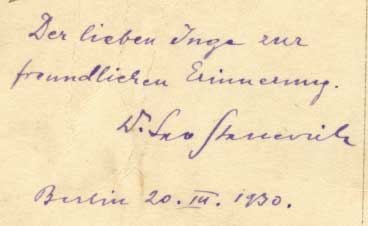 Der lieben Inge zur
freundlichen Erinnerung.
Dr. Leo
Berlin 20. III. 1930.